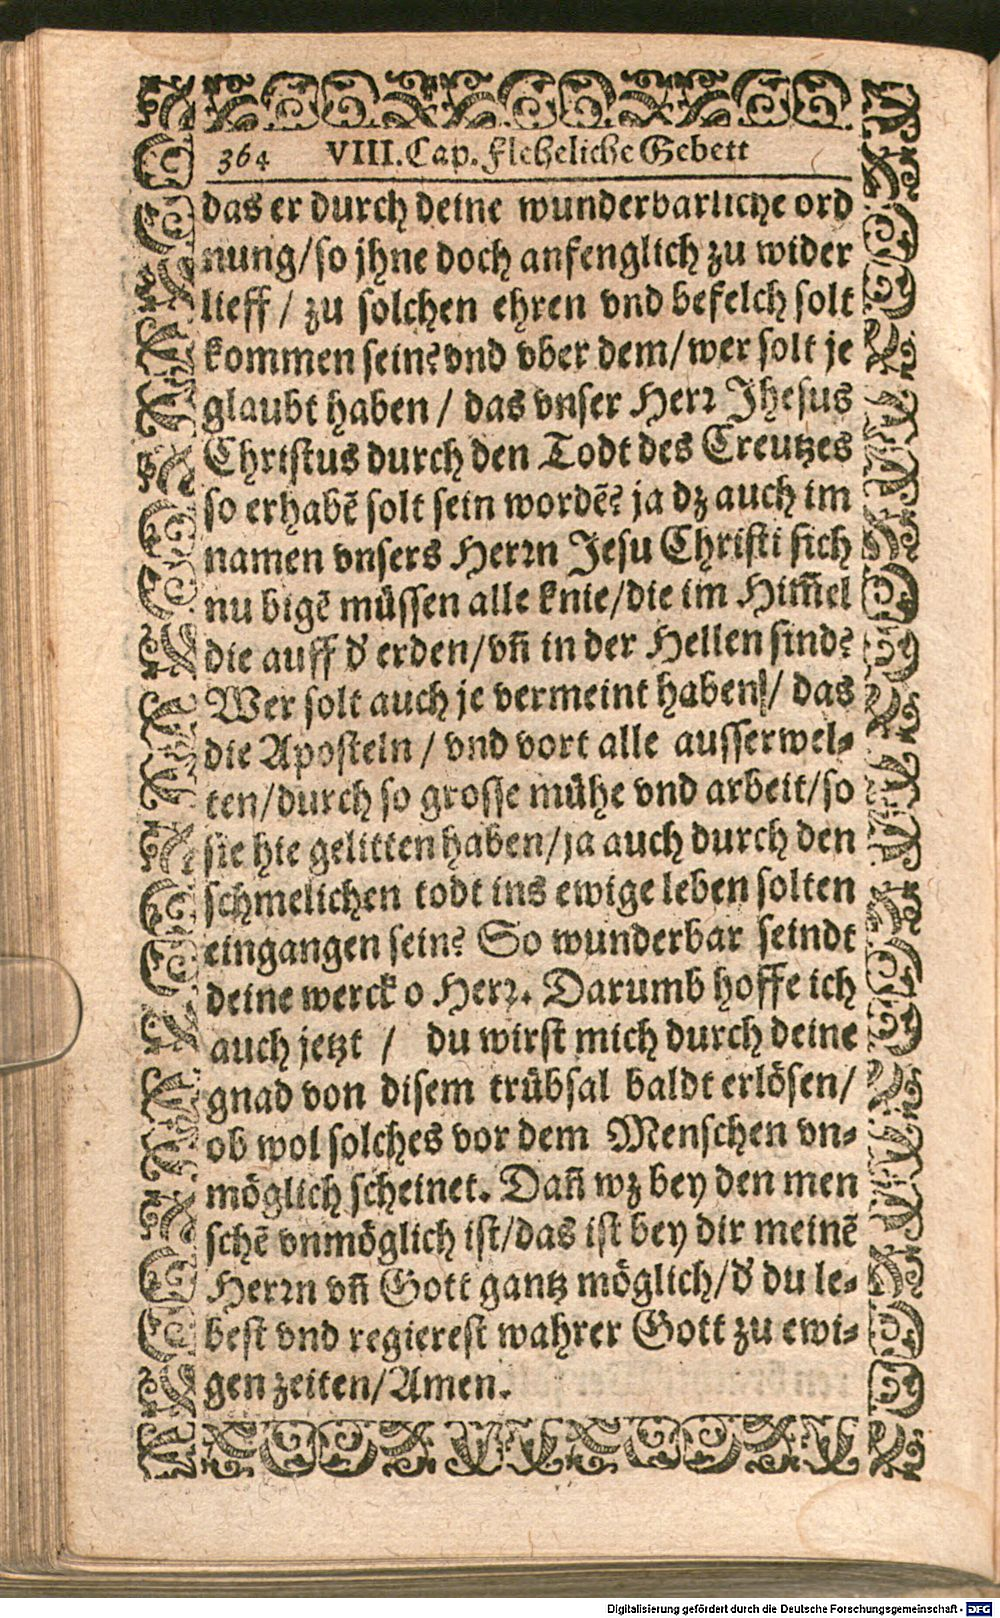 364 VIII. Cap. Fleheliche Gebett
das er durch deine wunderbarliche ord
nung/so jhne doch anfenglich zu wider
lieff / zu solchen ehren vnd befelch solt
kommen sein? vnd vber dem/wer solt je
glaubt haben / das vnser Herꝛ Jhesus
Christus durch den Todt des Creutzes
so erhabẽ solt sein wordẽ? ja dz auch im
namen vnsers Herꝛn Jesu Christi sich
nu bigẽ müssen alle knie/die im Him̃el
die auff d' erden/vñ in der Hellen sind?
Wer solt auch je vermeint haben/ das
die Aposteln / vnd vort alle ausserwel⸗
ten/durch so grosse mühe vnd arbeit/so
sie hie gelitten haben/ja auch durch den
schmelichen todt ins ewige leben solten
eingangen sein? So wunderbar seindt
deine werck o Herꝛ. Darumb hoffe ich
auch jetzt / du wirst mich durch deine
gnad von disem trübsal baldt erlösen/
ob wol solches vor dem Menschen vn⸗
möglich scheinet. Dañ wz bey den men
schẽ vnmöglich ist/das ist bey dir meinẽ
Herꝛn vñ Gott gantz möglich/d' du le⸗
best vnd regierest wahrer Gott zu ewi⸗
gen zeiten/Amen.
Digitalisierung gefördert durch die Deutsche Forschungsgemeinschaft - DFG